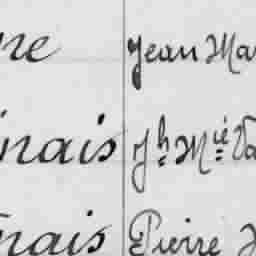 re Jean Ma
nais Jh Mie Va
nais Pierre